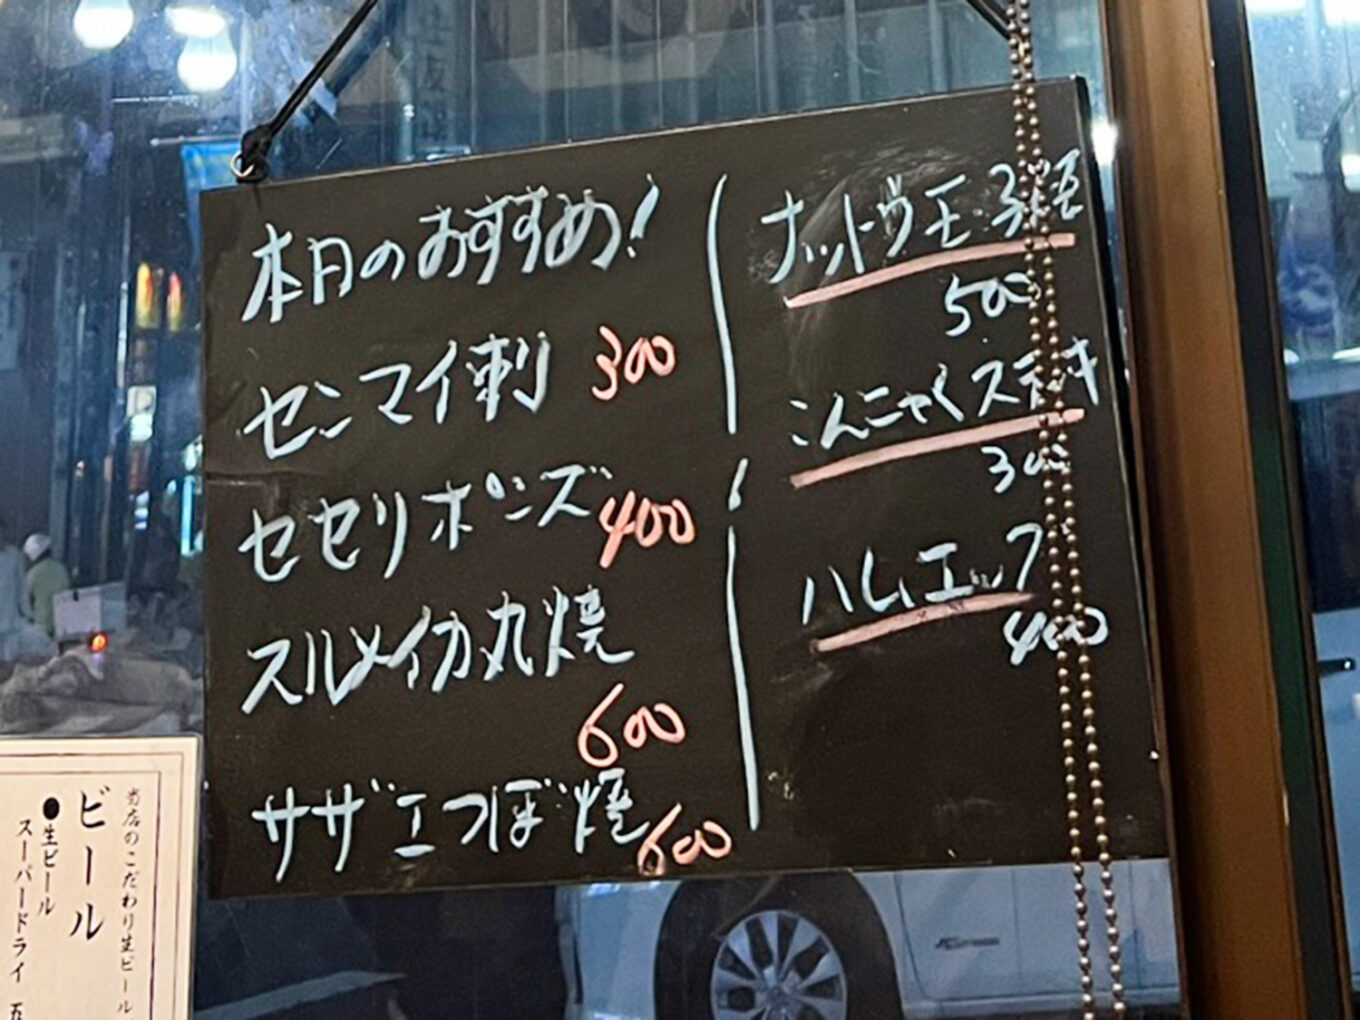 本日のおすすめ!
センマイ刺 300
セセリポンズ 400
スルメイカ丸焼
600
サザエつぼ焼 600
ナットウモ
500
こんにゃくステーキ
300
ハムエッグ
400
当店のこだわり生ビール
ビール
●生ビール
スーパードライ 五